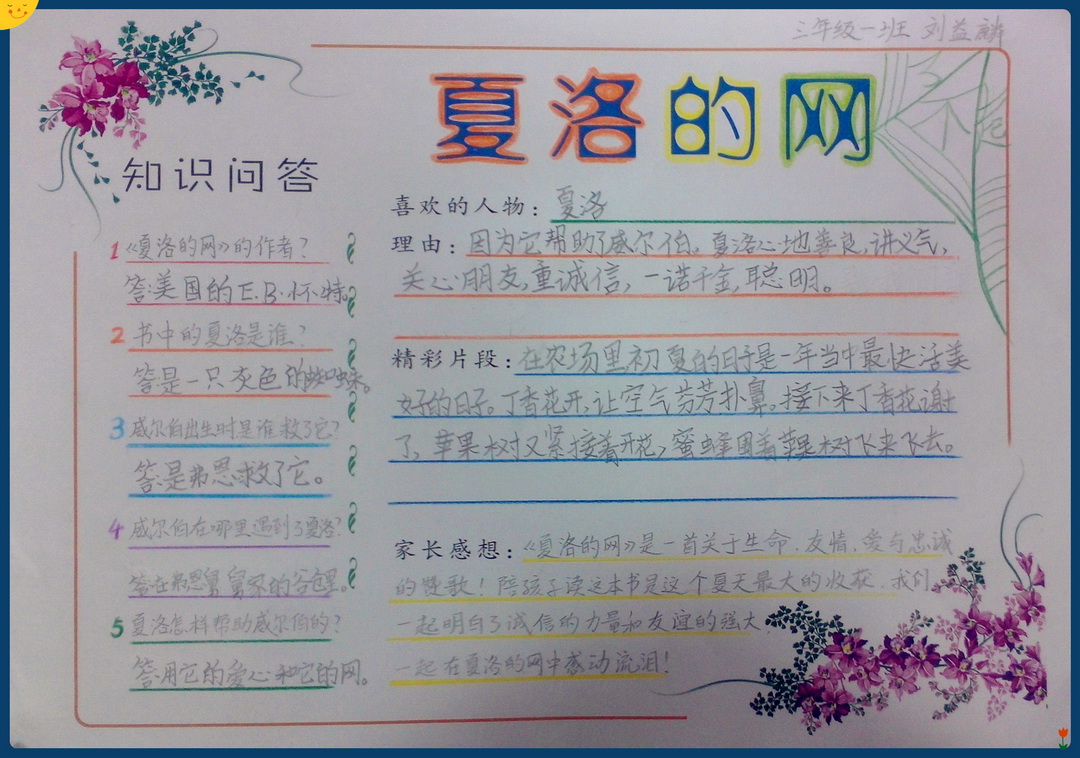 三年级一班 刘益麟
夏洛的网
知识问答
1 《夏洛的网》的作者?
答:美国的E.B.怀特。
2 书中的夏洛是谁?
答:是一只灰色的蜘蛛。
3 威尔伯出生时是谁救了它?
答:是弗恩救了它。
4 威尔伯在哪里遇到了夏洛?
答:在弗恩舅舅家的谷仓里。
5 夏洛怎样帮助威尔伯的?
答:用它的爱心和它的网。
喜欢的人物:夏洛
理由:因为它帮助了威尔伯。夏洛心地善良,讲义气,
关心朋友,重诚信,一诺千金,聪明。
精彩片段:在农场里初夏的日子是一年当中最快活美
好的日子。丁香花开,让空气芬芳扑鼻。接下来丁香花谢
了,苹果树又紧接着开花,蜜蜂围着苹果树飞来飞去。
家长感想:《夏洛的网》是一首关于生命、友情、爱与忠诚
的赞歌!陪孩子读这本书是这个夏天最大的收获,我们
一起明白了诚信的力量和友谊的强大,
一起在夏洛的网中感动流泪!